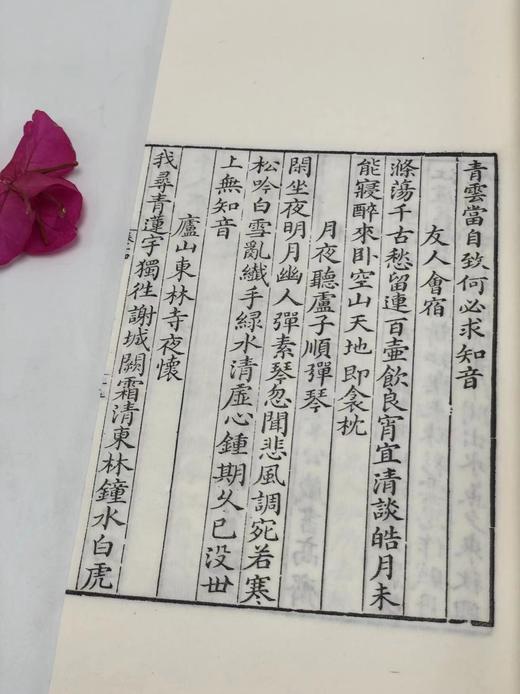 青雲當自致何必求知音
友人會宿
滌蕩千古愁留連百壺飲良宵宜清談皓月未
能寢醉來卧空山天地即衾枕
月夜聽盧子順彈琴
閑坐夜明月幽人彈素琴忽聞悲風調宛若寒
松吟白雪亂纖手緑水清虛心鍾期久已没世
上無知音
廬山東林寺夜懷
我尋青蓮宇獨徃謝城闕霜清東林鐘水白虎